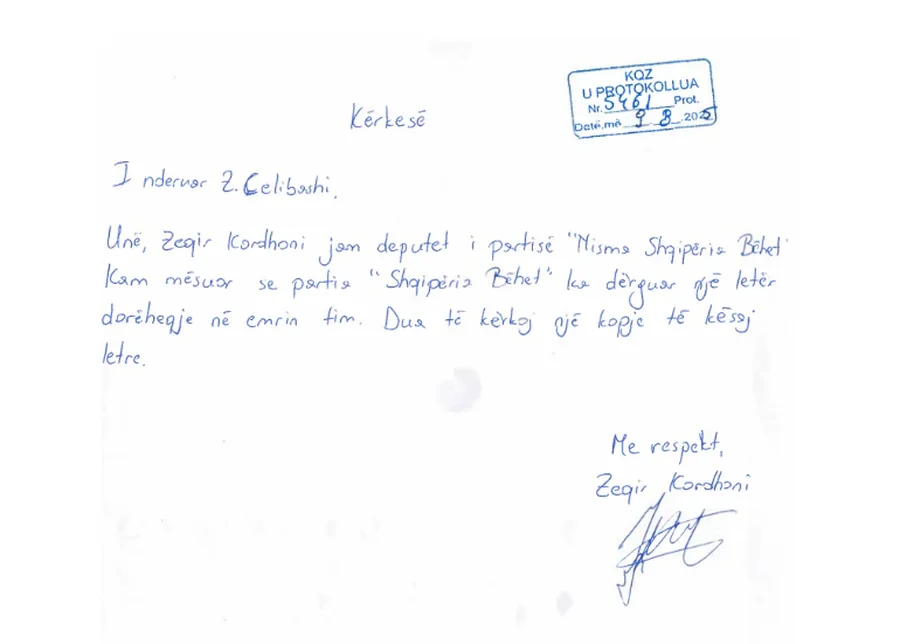 KQZ
U PROTOKOLLUA
Nr. 5461 Prot.
Datë, më 9 8 2025
Kërkesë
I nderuar Z. Celibashi,
Unë, Zeqir Kordhoni jam deputet i partisë "Nisma Shqipëria Bëhet"
Kam mësuar se partia "Shqipëria Bëhet" ka dërguar një letër
dorëheqje në emrin tim. Dua të kërkoj një kopje të kësaj
letre.
Me respekt,
Zeqir Kordhoni